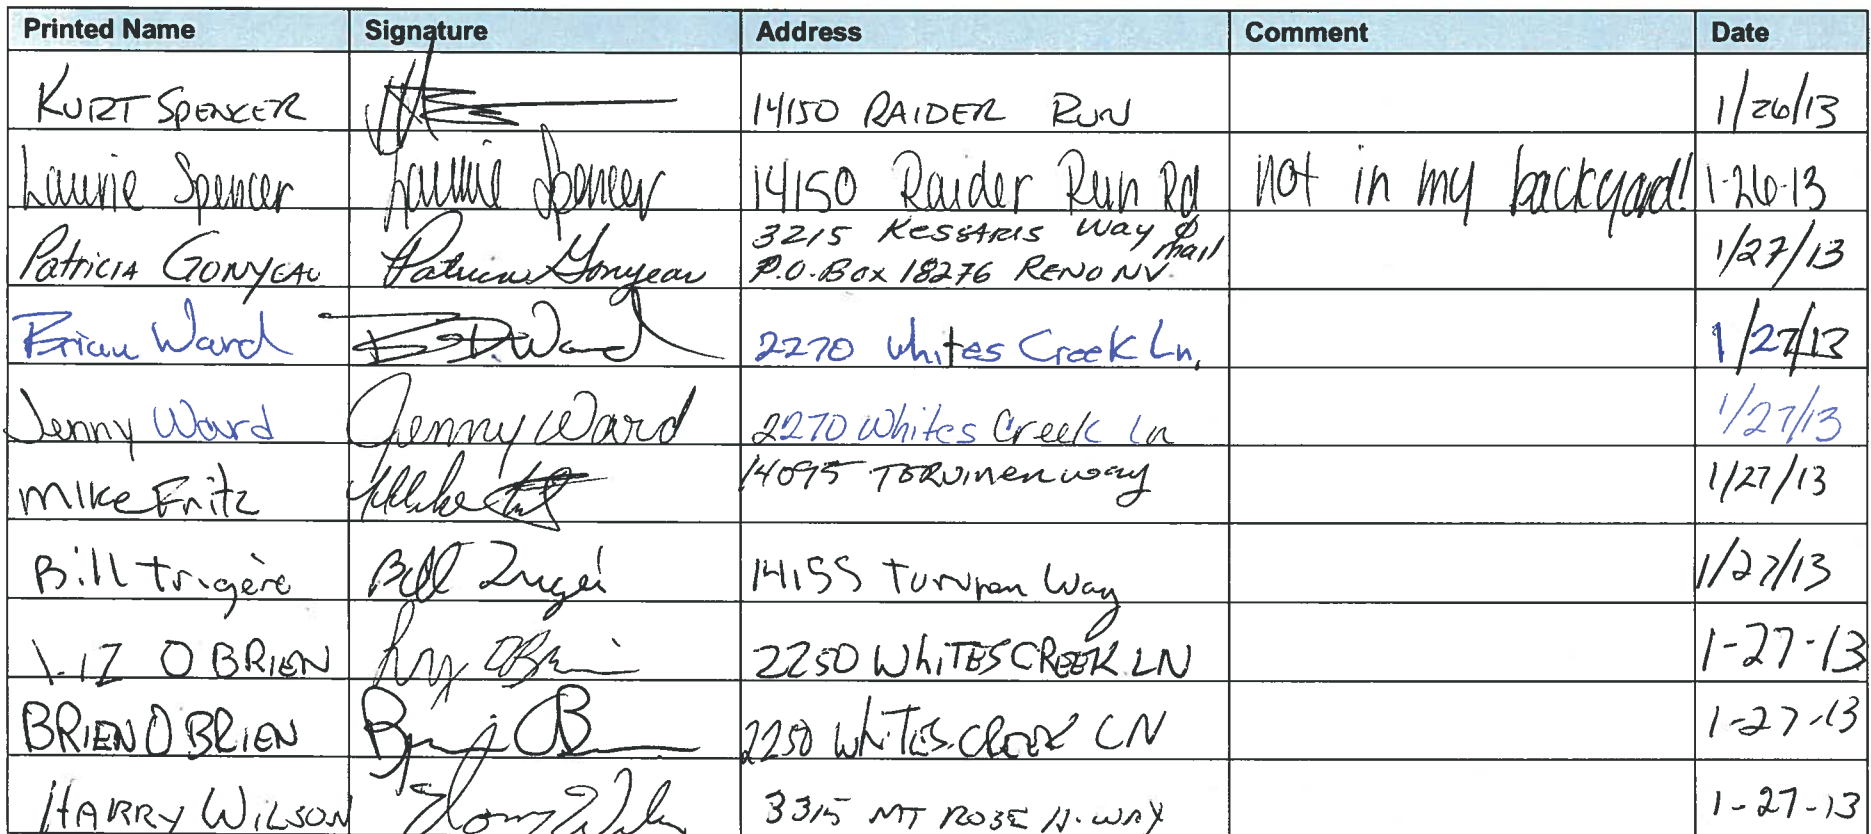 Printed Name Signature Address Comment Date
KURT SPENCER 14150 RAIDER RUN 1/26/13
Laurie Spencer Laurie Spencer 14150 Raider Run Rd not in my backyard! 1-26-13
3215 KESSARIS Way & mail
PATRICIA GONYEAU Patricia Gonyeau P.O. Box 18276 RENO NV 1/27/13
Brian Ward B D. Ward 2270 Whites Creek Ln, 1/27/13
Jenny Ward Jenny Ward 2270 Whites Creek Ln 1/27/13
MIKE Fritz Mike 14095 way 1/27/13
Bill Trigère Bill 14155 Way 1/27/13
LIZ O BRIEN 2250 WHITES CREEK LN 1-27-13
BRIEN O BRIEN 2250 WHITES CREEK LN 1-27-13
HARRY WILSON 3315 MT ROSE H-WAY 1-27-13